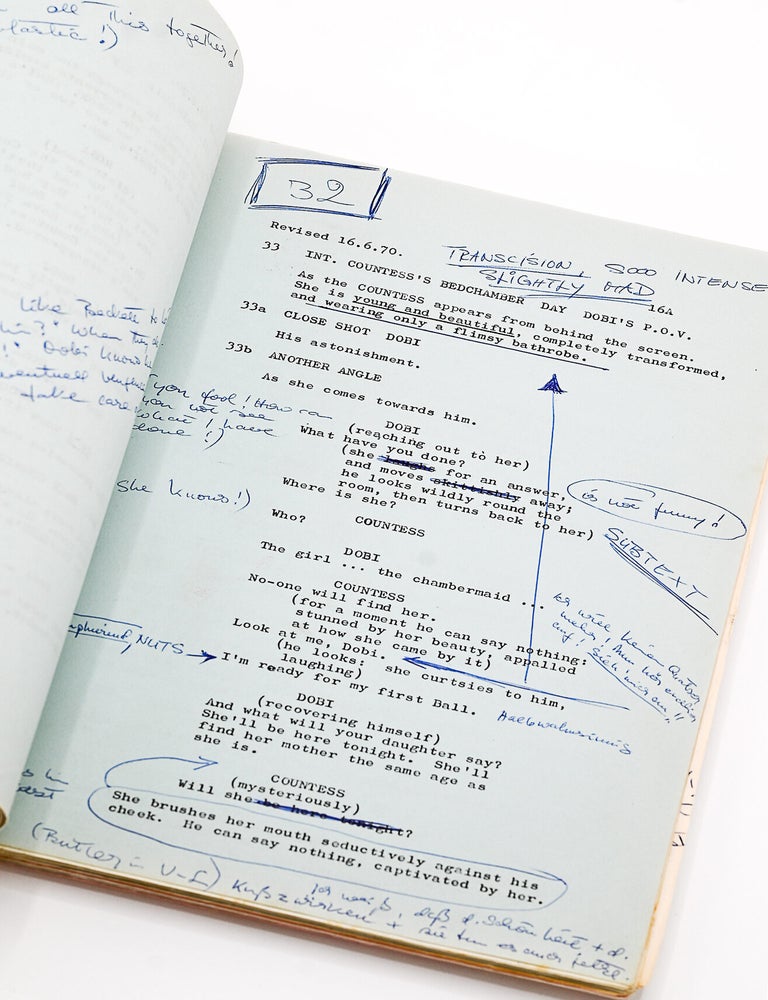 all This together!
32
Revised 16.6.70.
TRANSCISION, SOOO INTENSE
SLIGHTLY MAD
16A
33 INT. COUNTESS'S BEDCHAMBER DAY DOBI'S P.O.V.
As the COUNTESS appears from behind the screen.
She is young and beautiful, completely transformed,
and wearing only a flimsy bathrobe.
33a CLOSE SHOT DOBI
His astonishment.
33b ANOTHER ANGLE
As she comes towards him.
DOBI
(reaching out to her)
What have you done?
(she laughs for an answer,
and moves skittishly away;
he looks wildly round the
room, then turns back to her)
Where is she?
COUNTESS
Who?
DOBI
The girl ... the chambermaid ...
COUNTESS
No-one will find her.
(for a moment he can say nothing:
stunned by her beauty, appalled
at how she came by it)
Look at me, Dobi.
(he looks: she curtsies to him,
laughing)
I'm ready for my first Ball.
DOBI
(recovering himself)
And what will your daughter say?
She'll be here tonight. She'll
find her mother the same age as
she is.
COUNTESS
(mysteriously)
Will she be here tonight?
She brushes her mouth seductively against his
cheek. He can say nothing, captivated by her.
like Beckett
when they
Dobi knows
take care
you fool! How can
you not see
what I have
done!)
she knows!)
NUTS
es not funny!
SUBTEXT
Halbwahnsinnig
(Butler in
Ich weiß, daß d. Schönheit + d.
Kuß wirken + sie tun es auch jetzt.